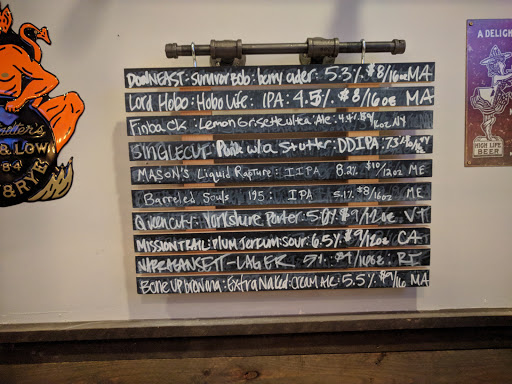 DOWNEAST: Summer Bob: berry cider: 5.3% $8/16oz MA
Lord Hobo: Hobo Life: IPA: 4.5% $8/16oz MA
Finback: Lemon Grisette Ale: 4.4% $9/16oz NY
SINGLECUT: Plink w/a Stutter: DDIPA: NY
MASON'S Liquid Rapture: IIPA 8.2% $10/12oz ME
Barreled Souls 195: IPA 5.1% $8/16oz ME
Queen City: Yorkshire Porter: 5.0% $9/12oz VT
MISSION TRAIL: Plum Jerkum: Sour: 6.5% $9/12oz CA
NARRAGANSETT-LAGER 5% 16oz: RI
Bone Up brewing: Extra Naked: cream Ale: 5.5% $9/16 MA
& LOW
& RYE
A DELIGH
HIGH LIFE
BEER